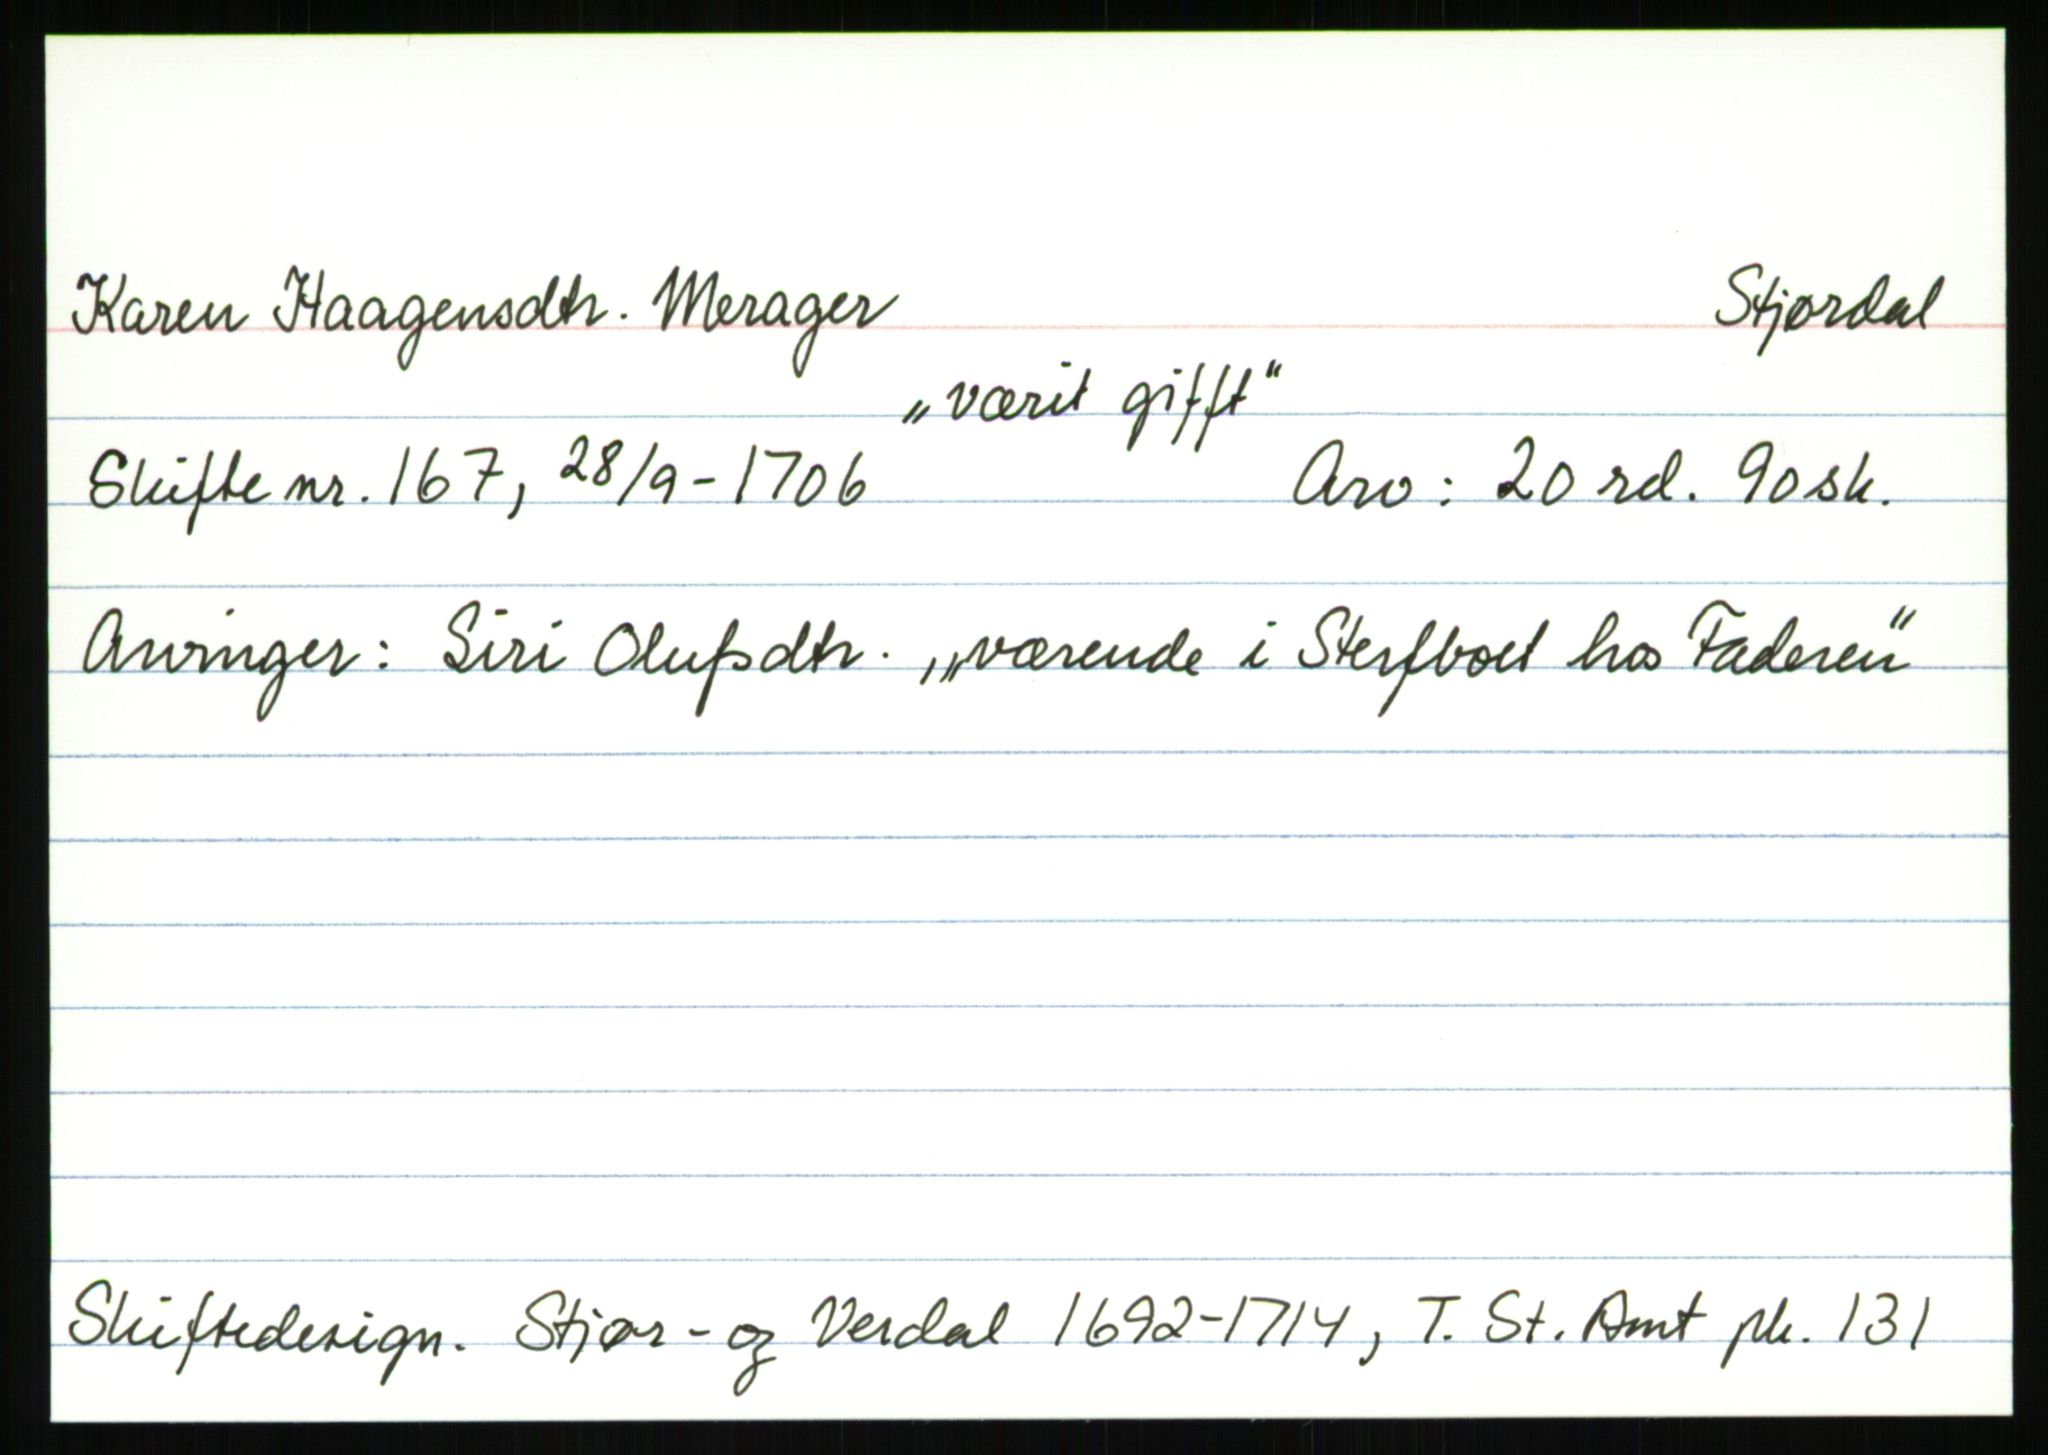 Karen Haagensdtr. Merager Stjørdal
„værit gifft"
Skifte nr. 167, 28/9-1706 Arv: 20 rd. 90 sk.
Arvinger: Siri Olufsdtr., „værende i Sterfboet hos Faderen"
Skiftedesign. Stjør- og Verdal 1692-1714, T. St. Amt pk. 131